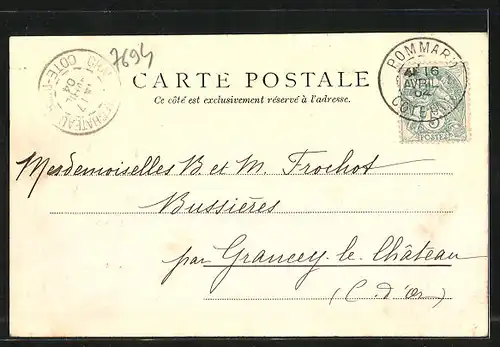 7694
CARTE POSTALE
Ce côté est exclusivement réservé à l'adresse.
POMMARD
16
AVRIL
04
COTE D'OR
Mesdemoiselles B et M. Frochot
Bussières
par Grancey-le-Château
(C. d'Or)